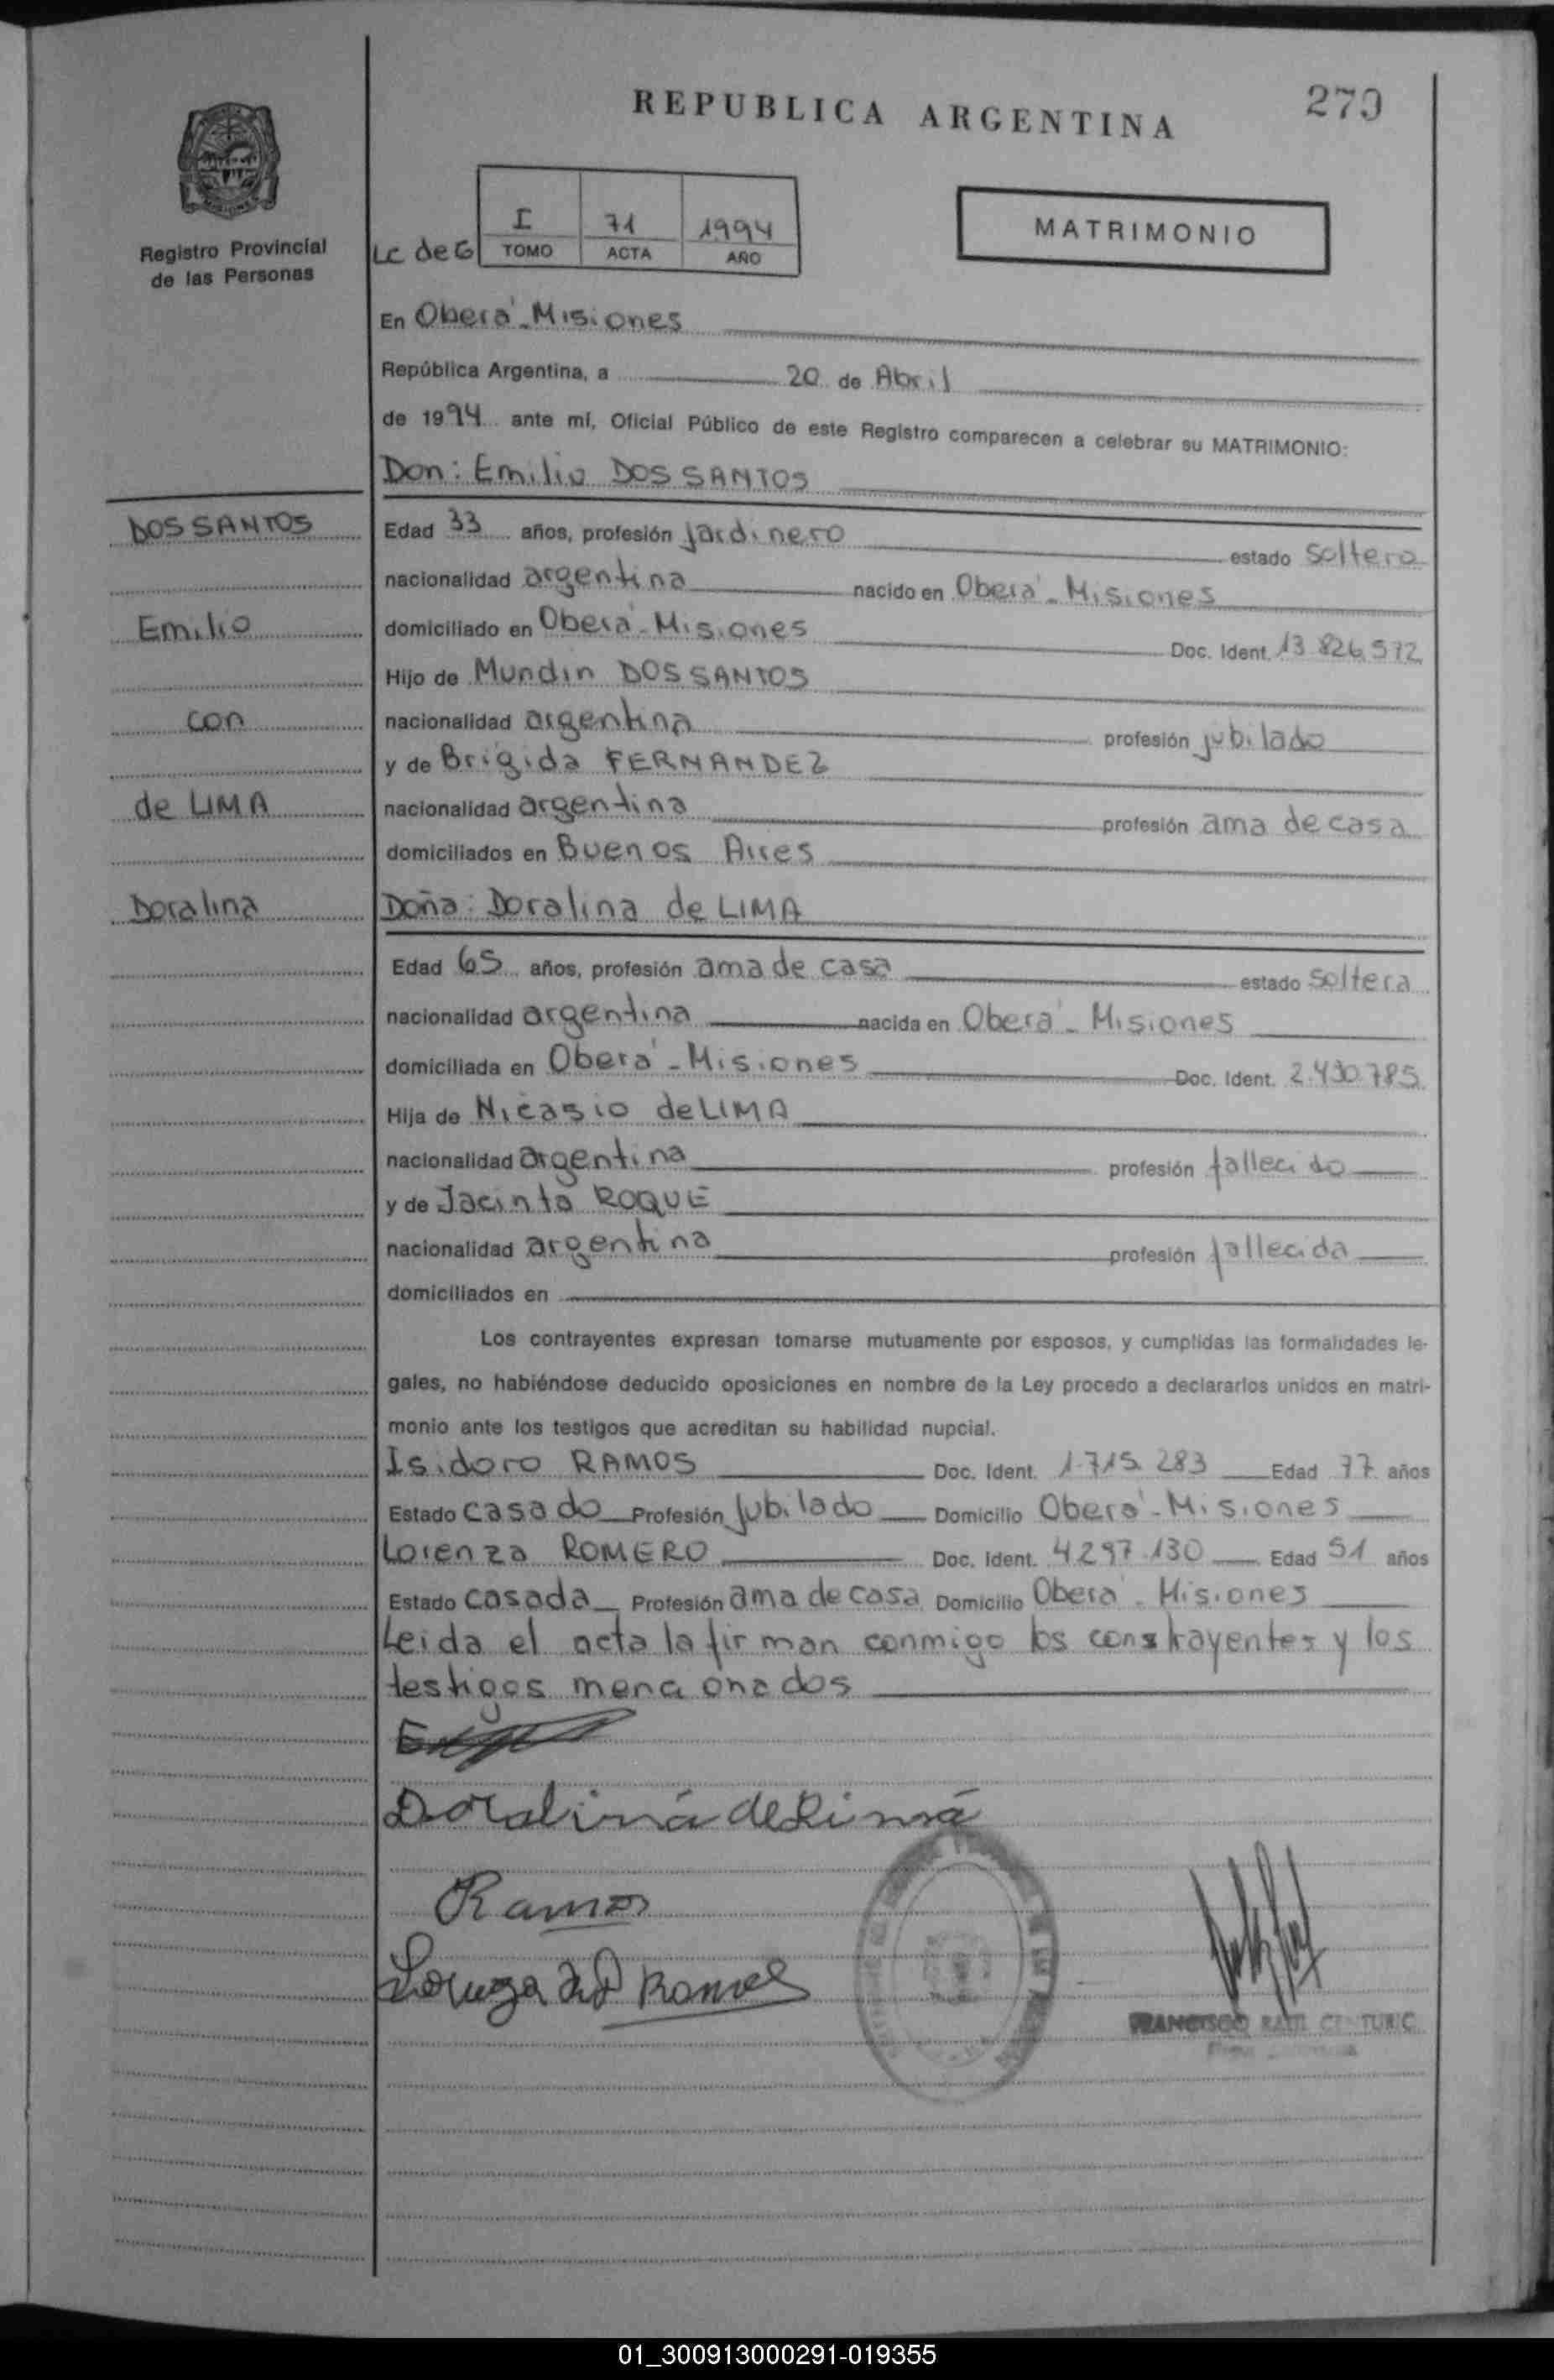 REPUBLICA ARGENTINA
279
Registro Provincial
de las Personas
Lc de G
I 71 1994
TOMO ACTA AÑO
MATRIMONIO
En Oberá - Misiones
República Argentina, a 20 de Abril
de 1994 ante mí, Oficial Público de este Registro comparecen a celebrar su MATRIMONIO:
Don: Emilio DOS SANTOS
DOS SANTOS
Emilio
con
de LIMA
Doralina
Edad 33 años, profesión jardinero estado soltero
nacionalidad argentina nacido en Oberá - Misiones
domiciliado en Oberá - Misiones Doc. Ident. 13.826.572
Hijo de Mundin DOS SANTOS
nacionalidad argentina profesión jubilado
y de Brigida FERNANDEZ
nacionalidad argentina profesión ama de casa
domiciliados en Buenos Aires
Doña: Doralina de LIMA
Edad 65 años, profesión ama de casa estado soltera
nacionalidad argentina nacida en Oberá - Misiones
domiciliada en Oberá - Misiones Doc. Ident. 2.430.785
Hija de Nicasio de LIMA
nacionalidad argentina profesión fallecido
y de Jacinta ROQUE
nacionalidad argentina profesión fallecida
domiciliados en
Los contrayentes expresan tomarse mutuamente por esposos, y cumplidas las formalidades le-
gales, no habiéndose deducido oposiciones en nombre de la Ley procedo a declararlos unidos en matri-
monio ante los testigos que acreditan su habilidad nupcial.
Isidoro RAMOS Doc. Ident. 1.715.283 Edad 77 años
Estado casado Profesión jubilado Domicilio Oberá - Misiones
Lorenza ROMERO Doc. Ident. 4.297.130 Edad 51 años
Estado casada Profesión ama de casa Domicilio Oberá - Misiones
Leida el acta la firman conmigo los contrayentes y los
testigos mencionados
Doralina de Lima
Ramos
Ramos
FRANCISCO RAUL
01_300913000291-019355